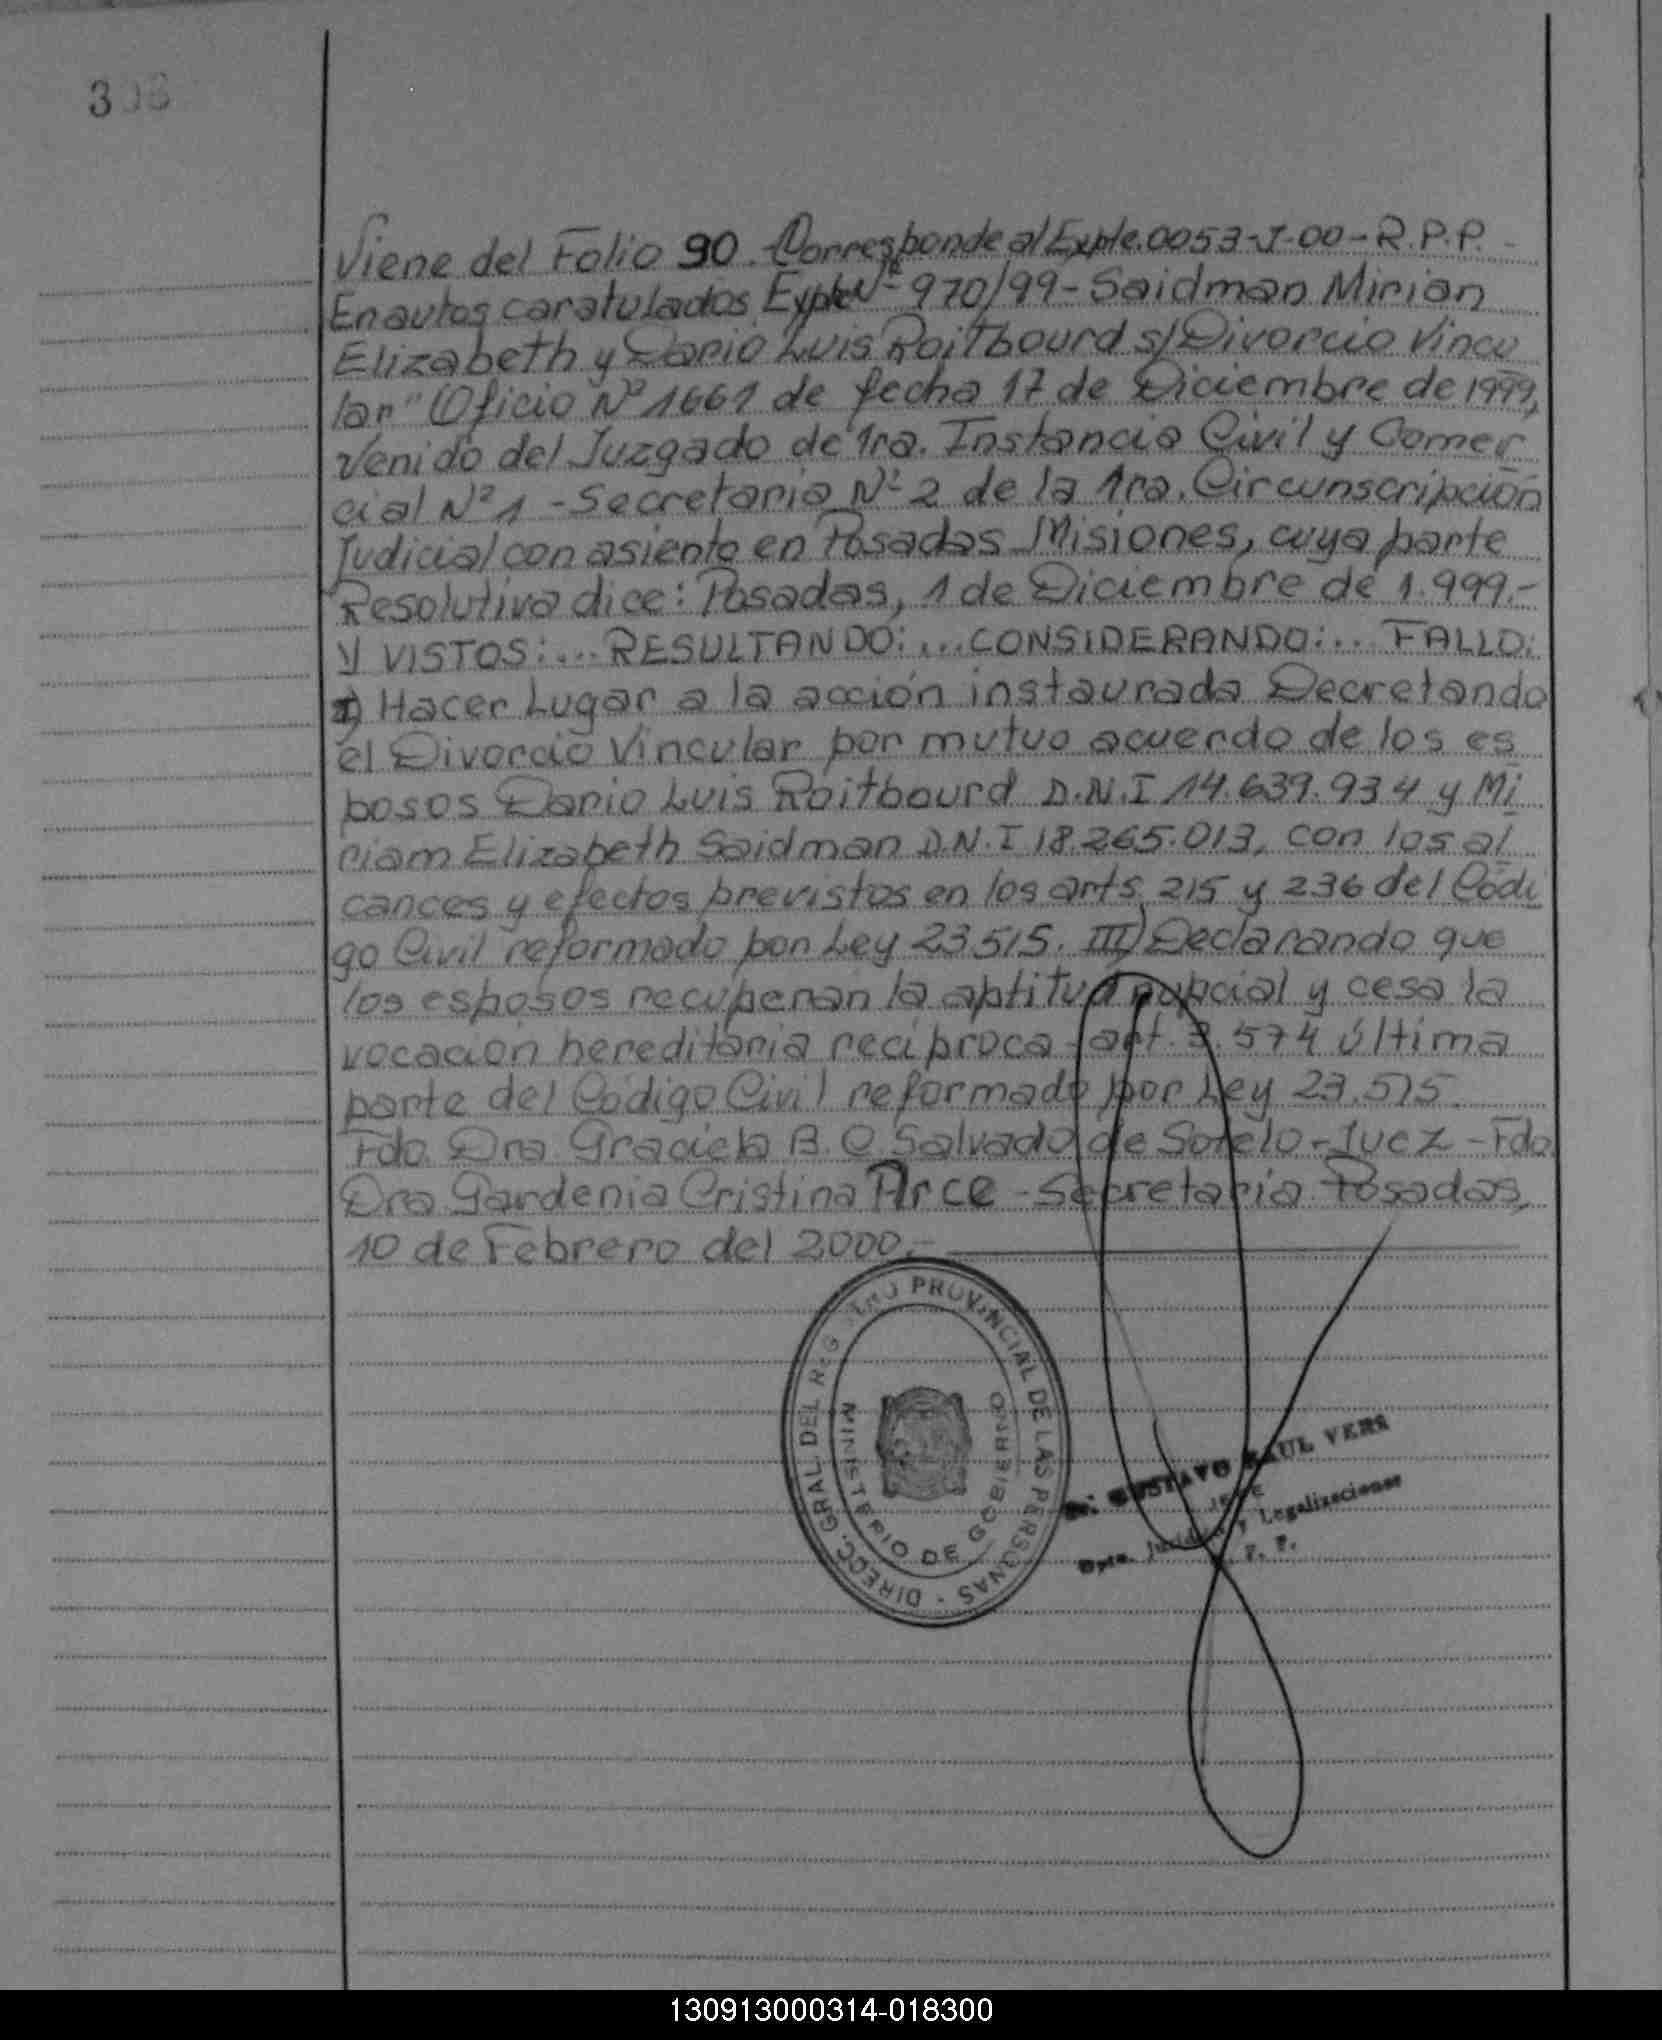 308
Viene del Folio 90. Corresponde al Expte. 0053-J-00-R.P.P.-
En autos caratulados Expte Nº 970/99-Saidman Mirian
Elizabeth y Dario Luis Roitbourd s/Divorcio Vincu
lar" Oficio Nº 1661 de fecha 17 de Diciembre de 1999,
Venido del Juzgado de 1ra. Instancia Civil y Comer
cial Nº 1 - Secretaria Nº 2 de la 1ra. Circunscripción
Judicial con asiento en Posadas Misiones, cuya parte
Resolutiva dice: Posadas, 1 de Diciembre de 1.999.-
Y VISTOS:... RESULTANDO:... CONSIDERANDO:... FALLO:
I) Hacer Lugar a la acción instaurada Decretando
el Divorcio Vincular por mutuo acuerdo de los es
posos Dario Luis Roitbourd D.N.I 14.639.934 y Mi
riam Elizabeth Saidman D.N.I 18.265.013, con los al
cances y efectos previstos en los arts. 215 y 236 del Códi
go Civil reformado por Ley 23.515. III) Declarando que
los esposos recuperan la aptitud nupcial y cesa la
vocación hereditaria recíproca - art. 3.574 última
parte del Código Civil reformado por Ley 23.515.
Fdo. Dra. Graciela B. C. Salvado de Sotelo - Juez - Fdo.
Dra. Gardenia Cristina Arce - Secretaria. Posadas,
10 de Febrero del 2.000.-
DIRECC. GRAL DEL REG PROVINCIAL DE LAS PERSONAS
MINISTERIO DE GOBIERNO
GUSTAVO RAUL VERA
JEFE
Dpto. Juridico y Legalizaciones
P. P.
130913000314-018300